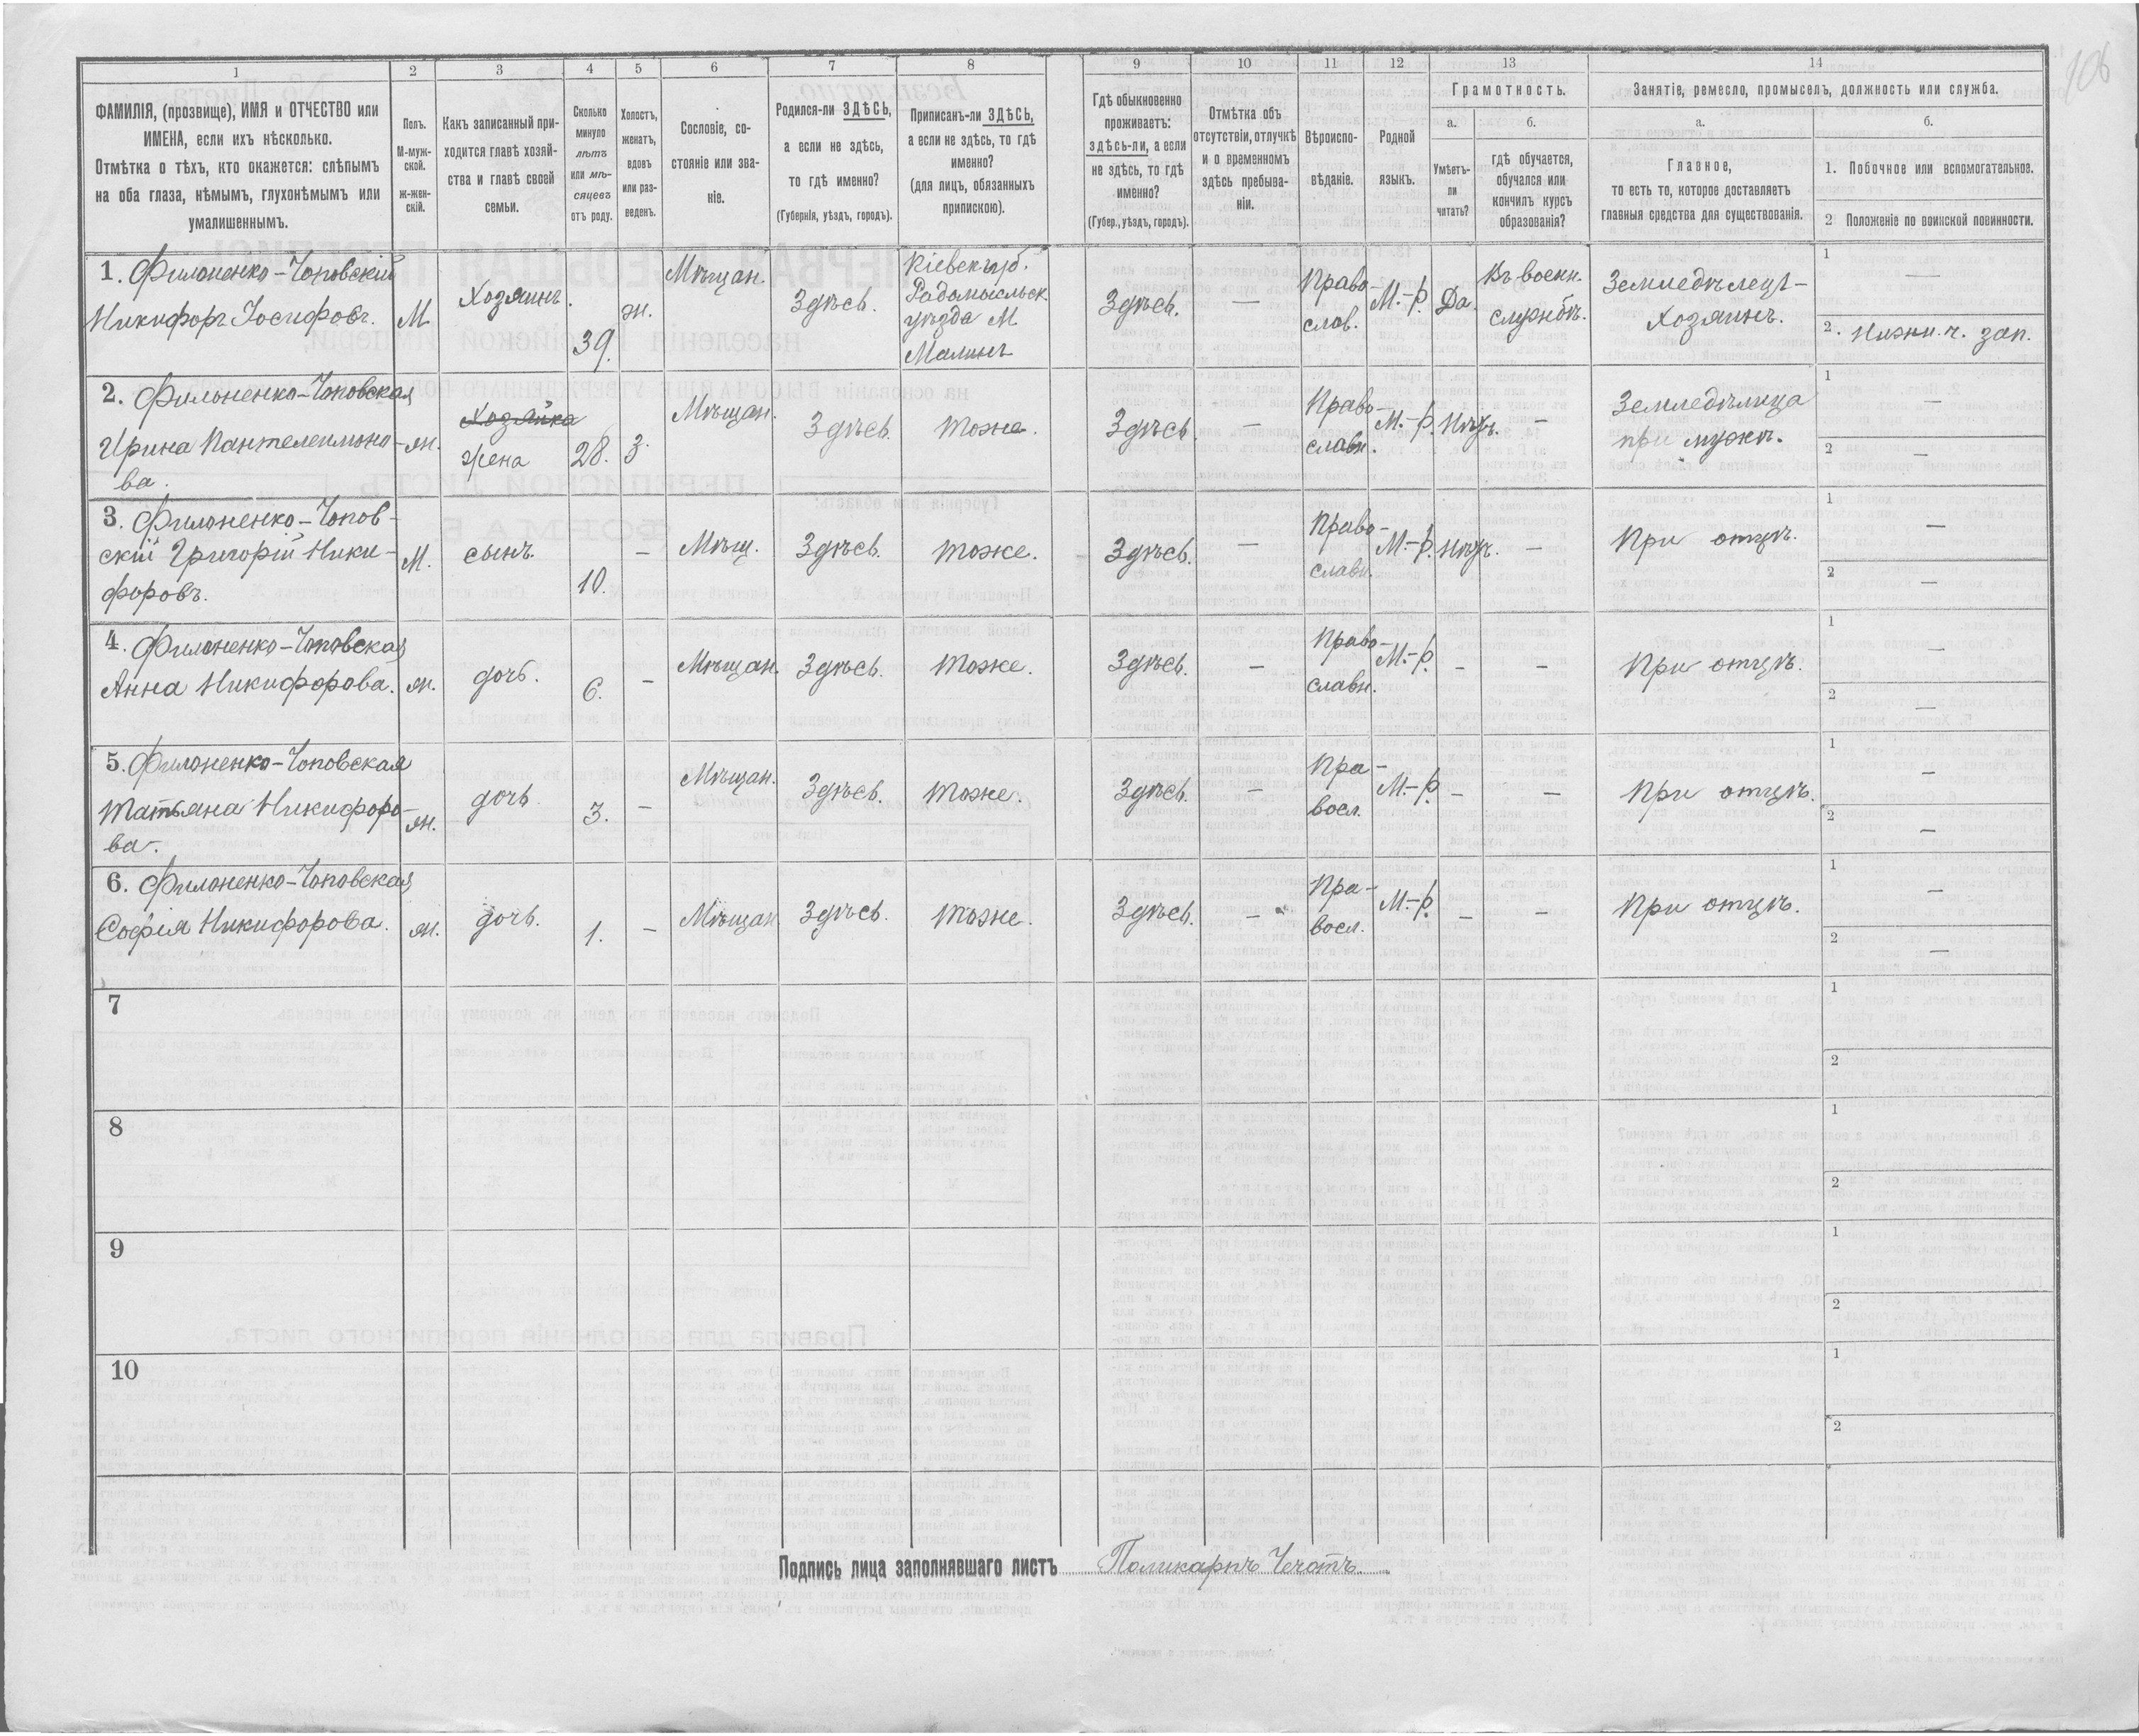 106
1
2
3
4
5
6
7
8
9
10
11
12
13
14
ФАМИЛІЯ, (прозвище), ИМЯ и ОТЧЕСТВО или
ИМЕНА, если ихъ нѣсколько.
Отмѣтка о тѣхъ, кто окажется: слѣпымъ
на оба глаза, нѣмымъ, глухонѣмымъ или
умалишеннымъ.
Полъ.
М-муж-
ской.
ж-жен-
скій.
Какъ записанный при-
ходится главѣ хозяй-
ства и главѣ своей
семьи.
Сколько
минуло
лѣтъ
или мѣ-
сяцевъ
отъ роду.
Холостъ,
женатъ,
вдовъ
или раз-
веденъ.
Сословіе, со-
стояніе или зва-
ніе.
Родился-ли ЗДѢСЬ,
а если не здѣсь,
то гдѣ именно?
(Губернія, уѣздъ, городъ).
Приписанъ-ли ЗДѢСЬ,
а если не здѣсь, то гдѣ
именно?
(для лицъ, обязанныхъ
припискою).
Гдѣ обыкновенно
проживаетъ:
здѣсь-ли, а если
не здѣсь, то гдѣ
именно?
(Губер., уѣздъ, городъ).
Отмѣтка объ
отсутствіи, отлучкѣ
и о временномъ
здѣсь пребыва-
ніи.
Вѣроиспо-
вѣданіе.
Родной
языкъ.
Грамотность.
а.
Умѣетъ-
ли
читать?
б.
гдѣ обучается,
обучался или
кончилъ курсъ
образованія?
Занятіе, ремесло, промыселъ, должность или служба.
а.
Главное,
то есть то, которое доставляетъ
главныя средства для существованія.
б.
1. Побочное или вспомогательное.
2 Положеніе по воинской повинности.
1. Филоненко-Чоповскій
Никифоръ Іосифовъ.
М
Хозяинъ.
39.
ж.
Мѣщан.
Здѣсь.
Кіевск губ.
Радомысльск.
уѣзда М.
Малинъ
Здѣсь.
—
Право-
слав.
М.-р.
Да.
Въ воен.
службѣ.
Земледѣлецъ-
Хозяинъ.
1 —
2. Нижн. ч. зап.
2. Филоненко-Чоповская
Ирина Пантелеимоно-
ва.
ж.
Хозяйка
жена
28.
З.
Мѣщан.
Здѣсь.
Тоже.
Здѣсь.
—
Право-
славн.
М.-р.
Нѣтъ.
—
Земледѣлица
при мужѣ.
1 —
2 —
3. Филоненко-Чопов-
скій Григорій Ники-
форовъ.
М.
сынъ.
10.
—
Мѣщ.
Здѣсь.
Тоже.
Здѣсь.
—
Право-
славн.
М.-р.
Нѣтъ.
—
При отцѣ.
1 —
2 —
4. Филоненко-Чоповская
Анна Никифорова.
ж.
дочь.
6.
—
Мѣщан.
Здѣсь.
Тоже.
Здѣсь.
—
Право-
славн.
М.-р.
—
—
При отцѣ.
1 —
2 —
5. Филоненко-Чоповская
Татьяна Никифоро-
ва.
ж.
дочь.
3.
—
Мѣщан.
Здѣсь.
Тоже.
Здѣсь.
—
Пра-
восл.
М.-р.
—
—
При отцѣ.
1 —
2 —
6. Филоненко-Чоповская
Софія Никифорова.
ж.
дочь.
1.
—
Мѣщан
Здѣсь.
Тоже.
Здѣсь.
—
Пра-
восл.
М.-р.
—
—
При отцѣ.
1 —
2 —
7
1
2
8
1
2
9
1
2
10
1
2
Подпись лица заполнявшаго листъ Поликарпъ Чечотъ.